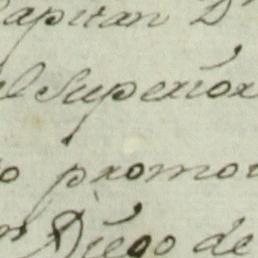 Capitan Dⁿ
el Superior
promo
Diego de